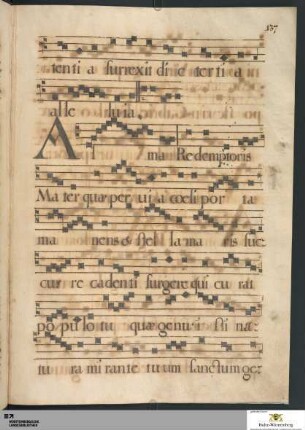 137
tenti a surrexit di e ter ti a
alle lu ia
A l ma Redemptoris
Ma ter quæ per ui a cœli por ta
ma nens & stel la ma ris suc:
cur re cadenti surgere qui cu rat
po pu lo tu quæ genu i sti na:
tu ra mi rante tu um sanctum ge: